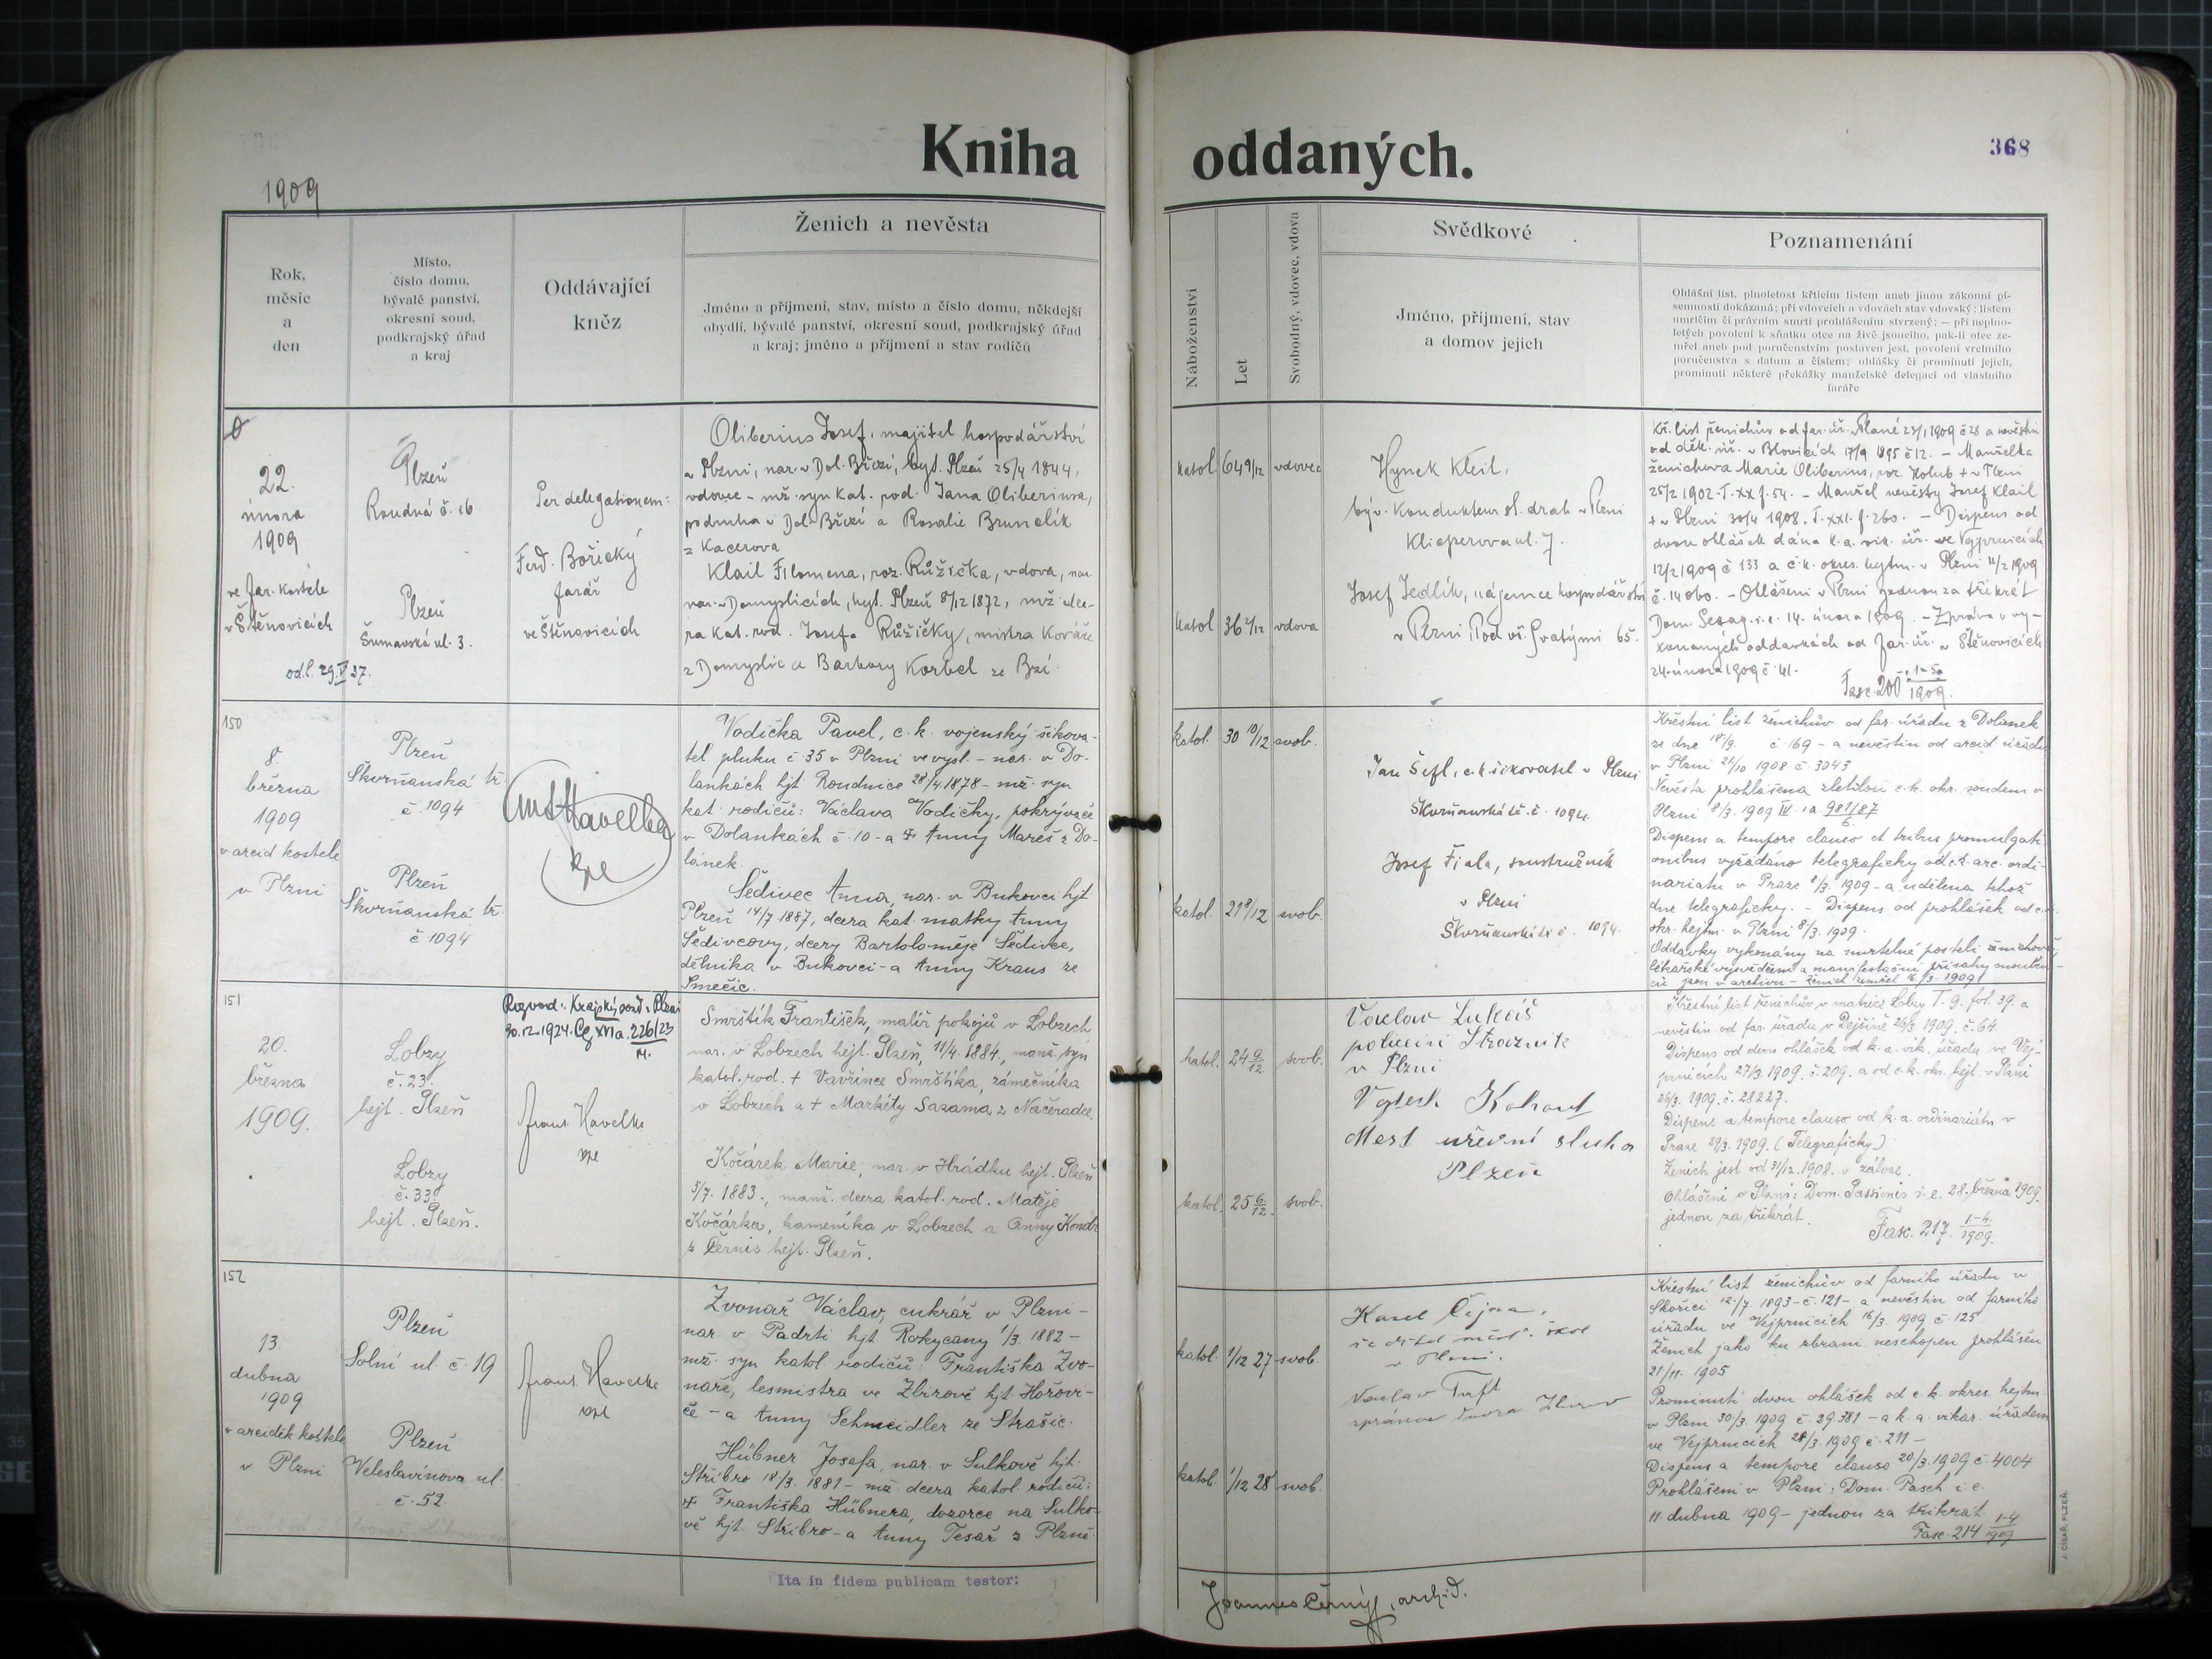 Kniha oddaných.
368
1909
Rok,
měsíc
a
den
Místo,
číslo domu,
bývalé panství,
okresní soud,
podkrajský úřad
a kraj
Oddávající
kněz
Ženich a nevěsta
Jméno a příjmení, stav, místo a číslo domu, někdejší
obydlí, bývalé panství, okresní soud, podkrajský úřad
a kraj; jméno a příjmení a stav rodičů
Náboženství
Let
Svobodný, vdovec, vdova
Svědkové
Jméno, příjmení, stav
a domov jejich
Poznamenání
Ohlášní list, plnoletost křticím listem aneb jinou zákonní pí-
semností dokázaná; při vdovcích a vdovách stav vdovský; listem
umrlčím či právním smrti prohlášením stvrzený; — při neplno-
letých povolení k sňatku otce na živě jsoucího, pak-li otec ze-
mřel aneb pod poručenstvím postaven jest, povolení vrchního
poručenstva s datum a číslem; ohlášky či prominutí jejich,
prominutí některé překážky manželské delegací od vlastního
faráře
22.
února
1909
ve far. kostele
v Štěnovicích
odl. 29.V 37.
Plzeň
Roudná č. 16
Plzeň
Šumavská ul. 3.
Per delegationem:
Ferd. Bořický
farář
ve Štěnovicích
Oliberius Josef, majitel hospodářství
v Plzni, nar. v Dol. Bříz̆i, hyt. Plzeň 25/4 1844,
vdovec - mž. syn kat. rod. Jana Oliberiusa,
podruha v Dol. Bříz̆i a Rosalie Brunclík
z Kacerova
Klail Filomena, roz. Růžička, vdova, nar.
nar. v Domyslicích, hyt. Plzeň 8/12 1872, mž. dce-
ra kat. rod. Josefa Růžičky, mistra kováře
z Domyslic a Barbory Korbel ze Bzí.
katol. 64 9/12 vdovec
katol 36 2/12 vdova
Hynek Kleil,
býv. kondukteur st. drah v Plzni
Klicperova ul. 7.
Josef Jedlík, nájemce hospodářství
v Plzni Pod vš. Svatými 65.
Kř. list ženichův od far. úř. v Plané 23/1 1909 č 28 a nevěstin
od děk. úř. v Blovicích 17/9 1895 č 12. - Manželka
ženichova Marie Oliberius, roz. Holub + v Plzni
25/2 1902. T. XX f. 54. - Manžel nevěsty Josef Klail
+ v Plzni 30/4 1908. T. XXI. f. 260. - Dispens od
dvou ohlášek dána k. a. vik. úř. ve Vejprnicích
12/2 1909 č 133 a c. k. okres. hejtm. v Plzni 11/2 1909
č. 14060. - Ohlášeni v Plzni jednou za třikrát
Dom. Sexag. i. e. 14. února 1909. - Zpráva o vy-
konaných oddavkách od far. úř. v Štěnovicích
24. února 1909 č. 41.
Fasc. 200 1-5a/1909.
150
8.
března
1909
v arcid kostele
v Plzni
Plzeň
Škvrňanská tř.
č. 1094
Plzeň
Škvrňanská tř.
č 1094
Ant Havelka
kpl
Vodička Pavel, c. k. vojenský šikova-
tel pluku č 35 v Plzni ve výsl. - nar. v Do-
lankách hjt Roudnice 28/4. 1878 - mž. syn
kat. rodičů: Václava Vodičky, pokrývače
v Dolankách č. 10 - a + Anny Mareš z Do-
lánek.
Šedivec Anna, nar. v Bukovci hjt
Plzeň 14/7 1887, dcera kat. matky Anny
Šedivcovy, dcery Bartoloměje Šedivce,
dělníka v Bukovci - a Anny Kraus ze
Smečic.
katol. 30 10/12 svob.
katol. 21 8/12 svob.
Jan Šefl, c. k. šikovatel v Plzni
Škvrňanská tř. č. 1094.
Josef Fiala, soustružník
v Plzni
Škvrňanská tř. č. 1094.
Křestní list ženichův od far. úřadu z Dolanek
ze dne 18/9. č 169 - a nevěstin od arcid. úřadu
v Plzni 21/10 1908 č. 3043
Nevěsta prohlášena zletilou c. k. okr. soudem v
Plzni 8/3. 1909 IV 1a 981/87
6.
Dispens a tempore clauso et tribus promulgati-
onibus vyžádáno telegraficky od k. arc. ordi-
nariatu v Praze 8/3. 1909 - a udělena téhož
dne telegraficky. - Dispens od prohlášek od c. k.
okr. hejtm. v Plzni 8/3. 1909.
Oddavky vykonány na smrtelné posteli ženichově
lékařské vysvědčení a manifestační přísahy snouben-
ců jsou v archivu - ženich zemřel 16/3. 1909
151
20.
března
1909.
Lobzy
č. 23.
hejt. Plzeň
Lobzy
č. 33.
hejt. Plzeň.
Rozvod: Krajský soud v Plzni
30.12.1924. Cg XVI a. 226/23
14.
Frant. Havelka
kpl
Smrštík František, malíř pokojů v Lobzech
nar. v Lobzech hejt. Plzeň, 11/4. 1884., manž. syn
katol. rod. + Vavřince Smrštíka, zámečníka
v Lobzech a + Markéty Sazama z Načeradce.
Kočárek Marie, nar. v Hrádku hejt. Plzeň
5/7. 1883., manž. dcera katol. rod. Matěje
Kočárka, kameníka v Lobzech a Anny Kondr
z Černic hejt. Plzeň.
katol. 24 9/12 svob.
katol. 25 6/12 svob.
Vaclav Lukáš
policení Stražník
v Plzni
Vojtech Kohout
Mest uřevní sluha
Plzeň
Křestní list ženichův v matrice Lobzy T. 9. fol. 39. a
nevěstin od far. úřadu v Dejšině 26/3. 1909. č. 64.
Dispens od dvou ohlášek od k. a. vik. úřadu ve Vej-
prnicích 27/3. 1909. č. 209. a od c. k. okr. hejt. v Plzni
26/3. 1909. č. 28227.
Dispens a tempore clauso od k. a. ordinariátu v
Praze 29/3. 1909. (Telegraficky)
Ženich jest od 31/12. 1908. v záloze.
Ohlášeni v Plzni: Dom. Passionis i. e. 28. března 1909.
jednou za třikrát.
Fasc. 217. 1-4./1909.
152
13.
dubna
1909
v arciděk. kostele
v Plzni
Plzeň
Solní ul. č. 19
Plzeň
Veleslavínova ul.
č. 52.
Frant. Havelka
kpl
Zvonař Václav, cukrář v Plzni -
nar v Padrti hjt. Rokycany 1/3. 1882 -
mž. syn katol. rodičů: Františka Zvo-
naře, lesmistra ve Zbirově hjt. Hořovi-
če - a Anny Schmeidler ze Strašic.
Hübner Josefa, nar. v Sulkově hjt.
Stříbro 18/3. 1881 - mž. dcera katol. rodičů:
+ Františka Hübnera, dozorce na Sulko-
vě hjt. Stříbro - a Anny Tesař z Plzně.
katol. 1/12 27 svob.
katol. 1/12 28 svob.
Karel Čejna,
ředitel měšť. škol
v Plzni.
Vaclav Tuft
správce dvora Zbirov
Křestní list ženichův od farního úřadu v
Skořici 12./7. 1893 - č. 121 - a nevěstin od farního
úřadu ve Vejprnicích 16/3. 1909 č. 125
Ženich jako ku zbrani neschopen prohlášen
21/11. 1905
Prominutí dvou ohlášek od c. k. okres. hejtm.
v Plzni 30/3. 1909 č. 29.381 - a k. a. vikar. úřadem
ve Vejprnicích 28/3. 1909 č. 211 -
Dispens a tempore clauso 20/3. 1909 č. 4004
Prohlášeni v Plzni: Dom. Pasch i. e.
11. dubna 1909 - jednou za třikrát.
Fasc. 214 1-4/1909
Ita in fidem publicam testor:
Joannes Černý, archid.
J. CÍSAŘ, PLZEŇ.